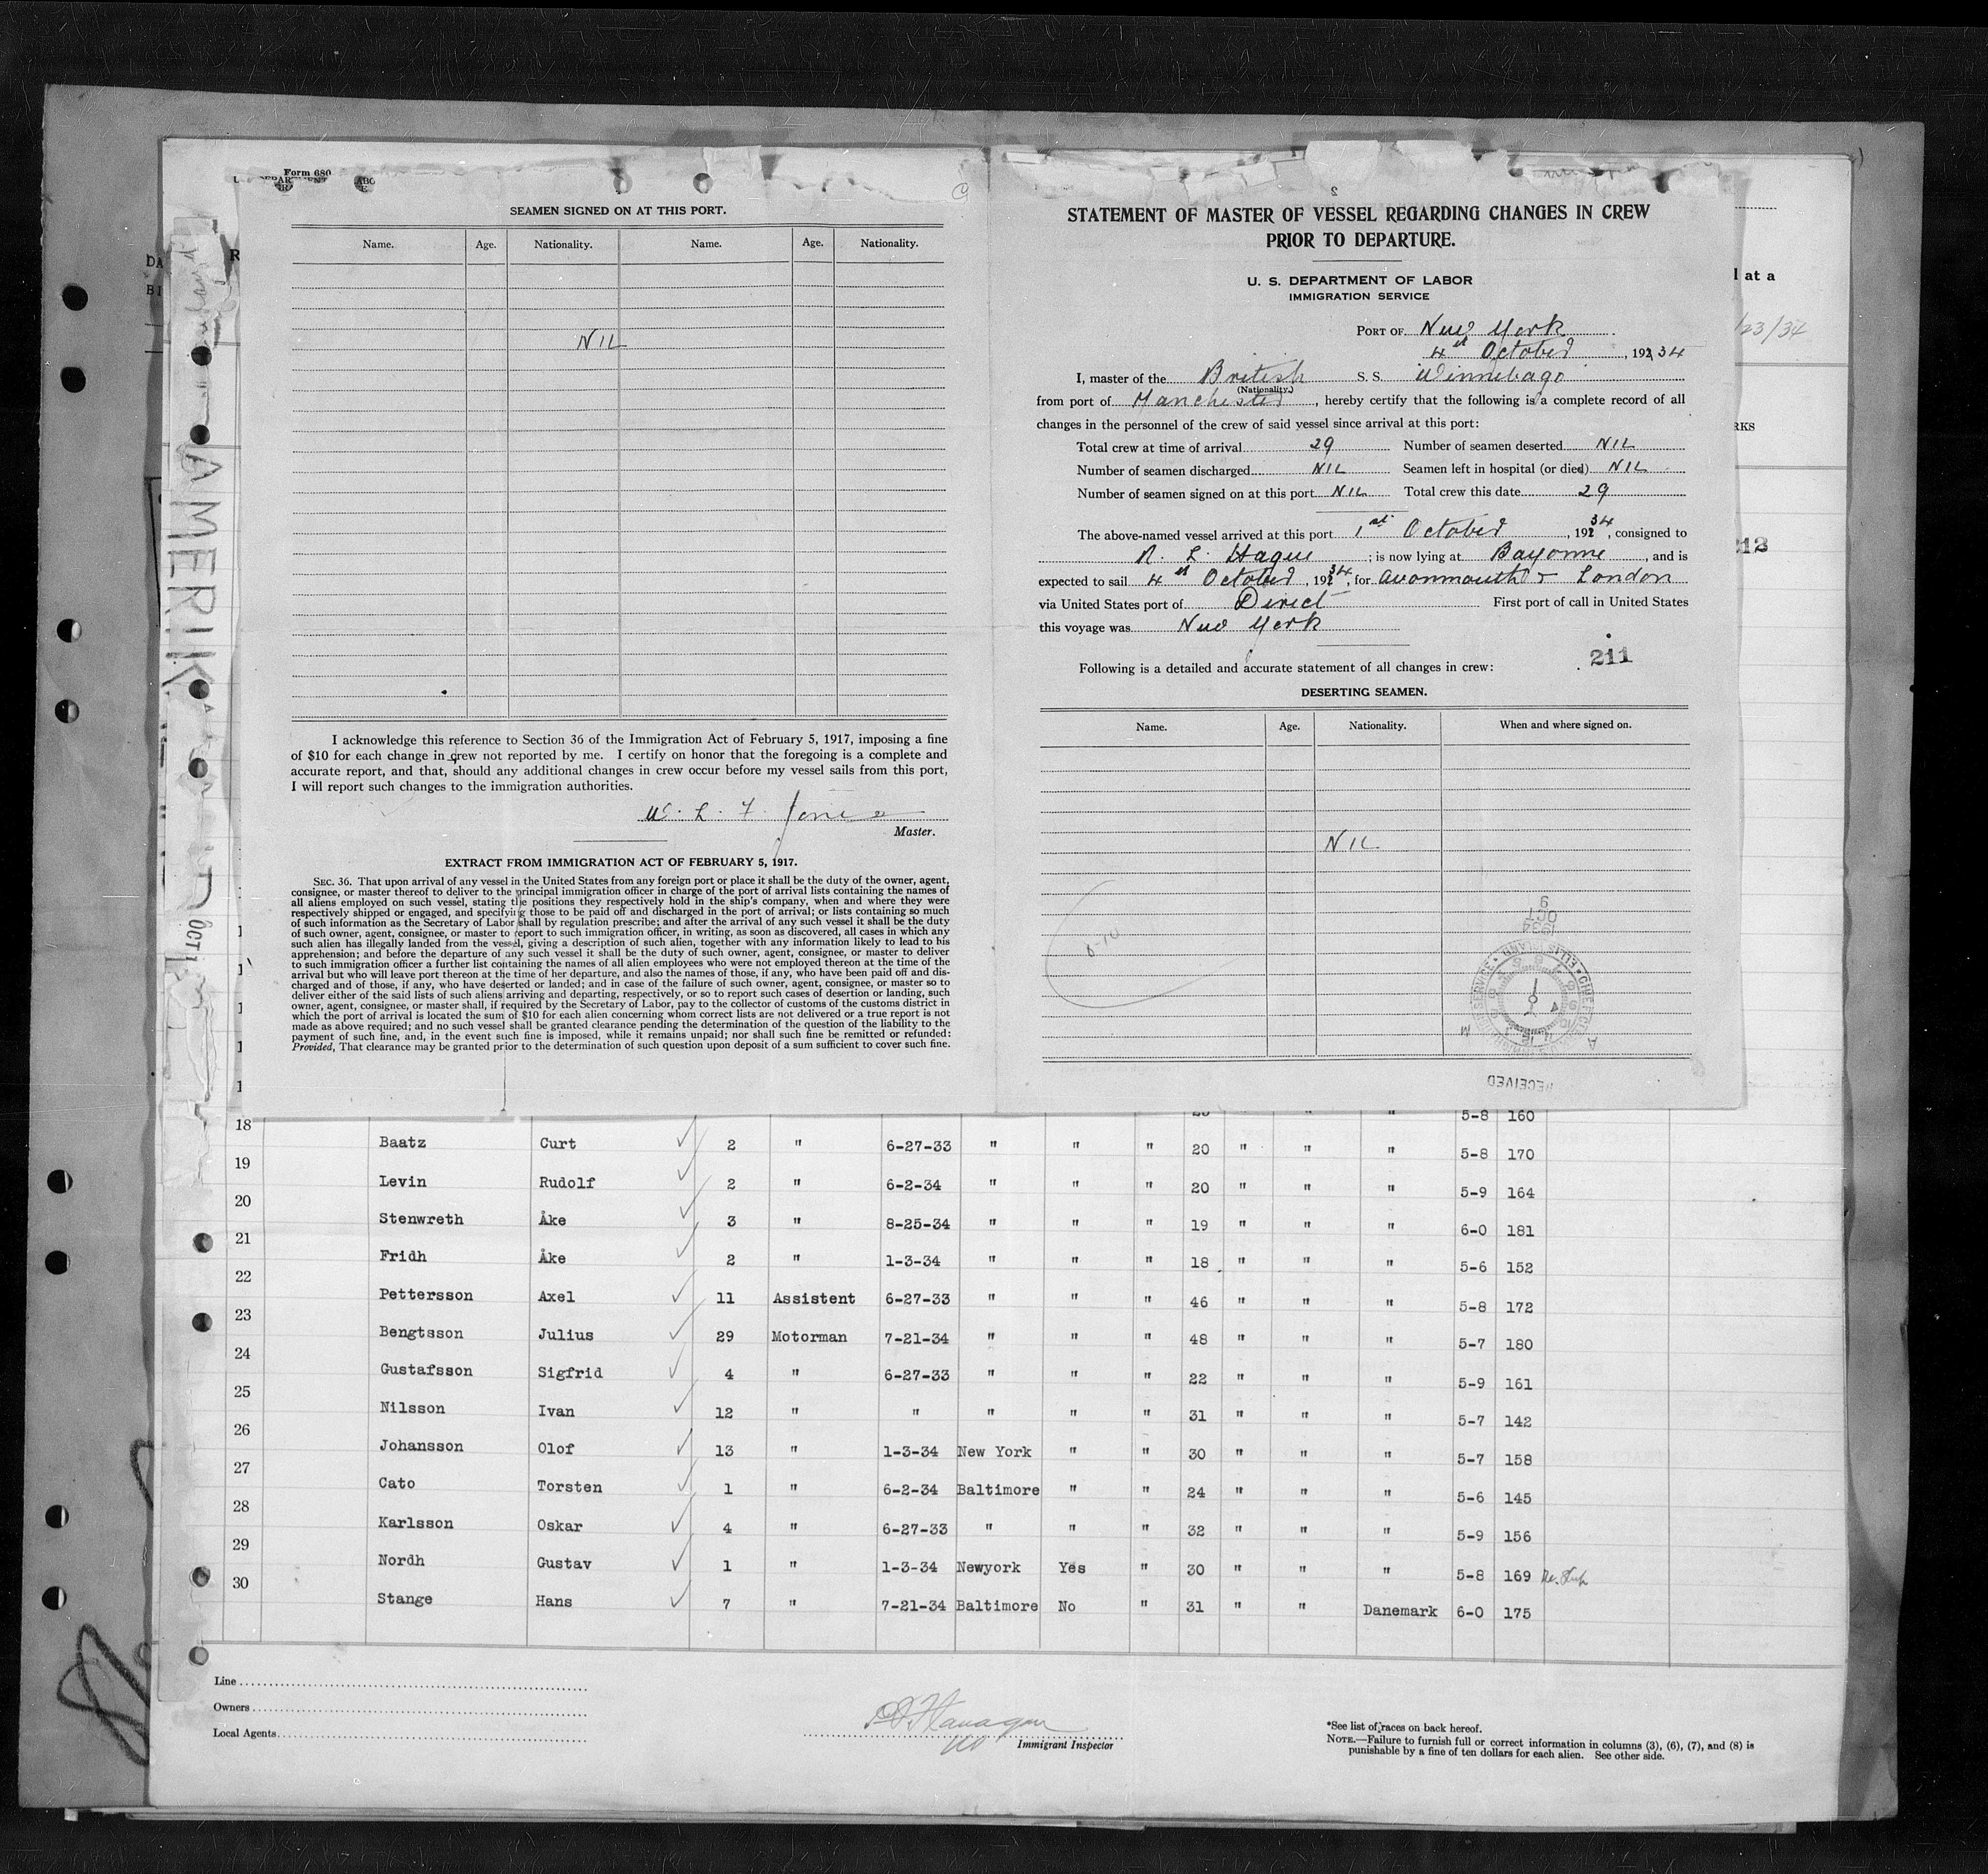 Form 680
SEAMEN SIGNED ON AT THIS PORT.
Name. Age. Nationality. Name. Age. Nationality.
NIL
I acknowledge this reference to Section 36 of the Immigration Act of February 5, 1917, imposing a fine
of $10 for each change in crew not reported by me. I certify on honor that the foregoing is a complete and
accurate report, and that, should any additional changes in crew occur before my vessel sails from this port,
I will report such changes to the immigration authorities.
W. L. F. Jones
Master.
EXTRACT FROM IMMIGRATION ACT OF FEBRUARY 5, 1917.
SEC. 36. That upon arrival of any vessel in the United States from any foreign port or place it shall be the duty of the owner, agent,
consignee, or master thereof to deliver to the principal immigration officer in charge of the port of arrival lists containing the names of
all aliens employed on such vessel, stating the positions they respectively hold in the ship's company, when and where they were
respectively shipped or engaged, and specifying those to be paid off and discharged in the port of arrival; or lists containing so much
of such information as the Secretary of Labor shall by regulation prescribe; and after the arrival of any such vessel it shall be the duty
of such owner, agent, consignee, or master to report to such immigration officer, in writing, as soon as discovered, all cases in which any
such alien has illegally landed from the vessel, giving a description of such alien, together with any information likely to lead to his
apprehension; and before the departure of any such vessel it shall be the duty of such owner, agent, consignee, or master to deliver
to such immigration officer a further list containing the names of all alien employees who were not employed thereon at the time of the
arrival but who will leave port thereon at the time of her departure, and also the names of those, if any, who have been paid off and dis-
charged and of those, if any, who have deserted or landed; and in case of the failure of such owner, agent, consignee, or master so to
deliver either of the said lists of such aliens arriving and departing, respectively, or so to report such cases of desertion or landing, such
owner, agent, consignee, or master shall, if required by the Secretary of Labor, pay to the collector of customs of the customs district in
which the port of arrival is located the sum of $10 for each alien concerning whom correct lists are not delivered or a true report is not
made as above required; and no such vessel shall be granted clearance pending the determination of the question of the liability to the
payment of such fine, and, in the event such fine is imposed, while it remains unpaid; nor shall such fine be remitted or refunded:
Provided, That clearance may be granted prior to the determination of such question upon deposit of a sum sufficient to cover such fine.
2
STATEMENT OF MASTER OF VESSEL REGARDING CHANGES IN CREW
PRIOR TO DEPARTURE.
U. S. DEPARTMENT OF LABOR
IMMIGRATION SERVICE
PORT OF New York
4th October, 192 34
I, master of the British S. S. Winnebago
(Nationality.)
from port of Manchester, hereby certify that the following is a complete record of all
changes in the personnel of the crew of said vessel since arrival at this port:
Total crew at time of arrival 29 Number of seamen deserted NIL
Number of seamen discharged NIL Seamen left in hospital (or died) NIL
Number of seamen signed on at this port NIL Total crew this date 29
The above-named vessel arrived at this port 1st October, 192 34, consigned to
R. L. Hague; is now lying at Bayonne, and is
expected to sail 4th October, 192 34, for Avonmouth & London
via United States port of Direct First port of call in United States
this voyage was New York
211
Following is a detailed and accurate statement of all changes in crew:
DESERTING SEAMEN.
Name. Age. Nationality. When and where signed on.
NIL
1934
OCT
9
RECEIVED
l at a
/23/34
RKS
212
AMERIK
OCT 1
5-8 160
18 Baatz Curt 2 " 6-27-33 " " " 20 " " " 5-8 170
19 Levin Rudolf 2 " 6-2-34 " " " 20 " " " 5-9 164
20 Stenwreth Åke 3 " 8-25-34 " " " 19 " " " 6-0 181
21 Fridh Åke 2 " 1-3-34 " " " 18 " " " 5-6 152
22 Pettersson Axel 11 Assistent 6-27-33 " " " 46 " " " 5-8 172
23 Bengtsson Julius 29 Motorman 7-21-34 " " " 48 " " " 5-7 180
24 Gustafsson Sigfrid 4 " 6-27-33 " " " 22 " " " 5-9 161
25 Nilsson Ivan 12 " " " " " 31 " " " 5-7 142
26 Johansson Olof 13 " 1-3-34 New York " " 30 " " " 5-7 158
27 Cato Torsten 1 " 6-2-34 Baltimore " " 24 " " " 5-6 145
28 Karlsson Oskar 4 " 6-27-33 " " " 32 " " " 5-9 156
29 Nordh Gustav 1 " 1-3-34 Newyork Yes " 30 " " " 5-8 169
30 Stange Hans 7 " 7-21-34 Baltimore No " 31 " " Danemark 6-0 175
Line
Owners
Local Agents
Flanagan
Immigrant Inspector
*See list of races on back hereof.
NOTE.—Failure to furnish full or correct information in columns (3), (6), (7), and (8) is
punishable by a fine of ten dollars for each alien. See other side.